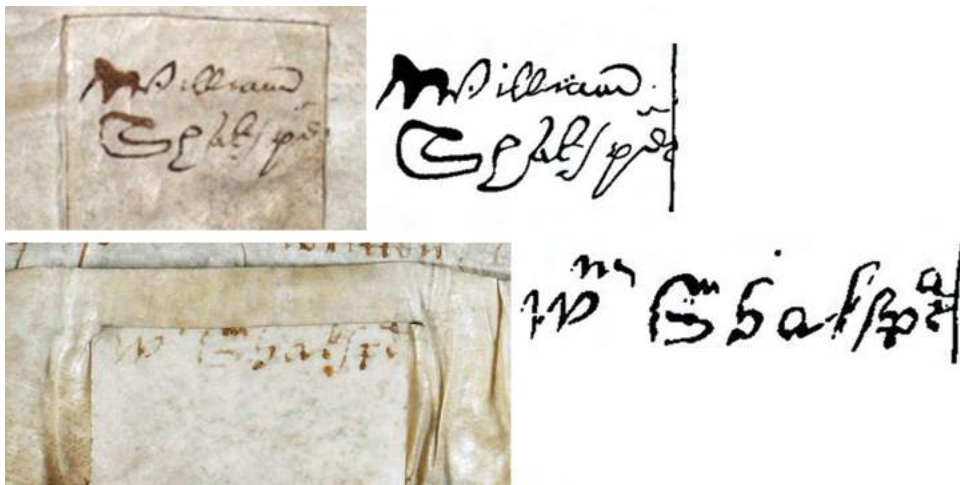 William
Shakspēr
William
Shakspēr
Wm Shakspe
Wm Shakspea